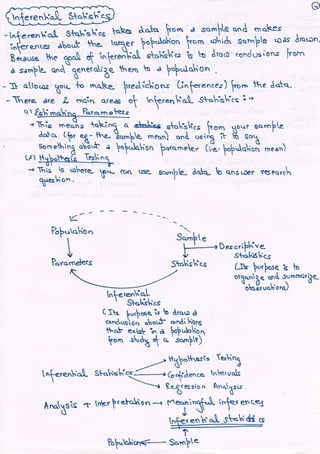 Inferential Statistics
- Inferential Statistics takes data from a sample and makes
inferences about the larger population from which sample was drawn.
Because the goal of inferential statistics is to draw conclusions from
a sample and generalize them to a population.
- It allows you to make predictions (inferences) from the data.
- There are 2 main areas of Inferential Statistics :→
(1) Estimating Parameters
→ This means taking a statistics from your sample
data (for eg- the sample mean) and using it to say
something about a population parameter (ie. population mean)
(2) Hypothesis Testing
→ This is where you can use sample data to answer research
question.
Population
Sample
→ Descriptive
Statistics
(Its purpose is to
organize and summarize
observations)
Parameters
Statistics
Inferential
Statistics
(Its purpose is to draw a
conclusion about conditions
that exist in a population
from study of a sample)
Inferential Statistics
→ Hypothesis Testing
→ Confidence Intervals
→ Regression Analysis
Analysis + Interpretation → Meaningful inferences
Inferential statistics
Population ← Sample